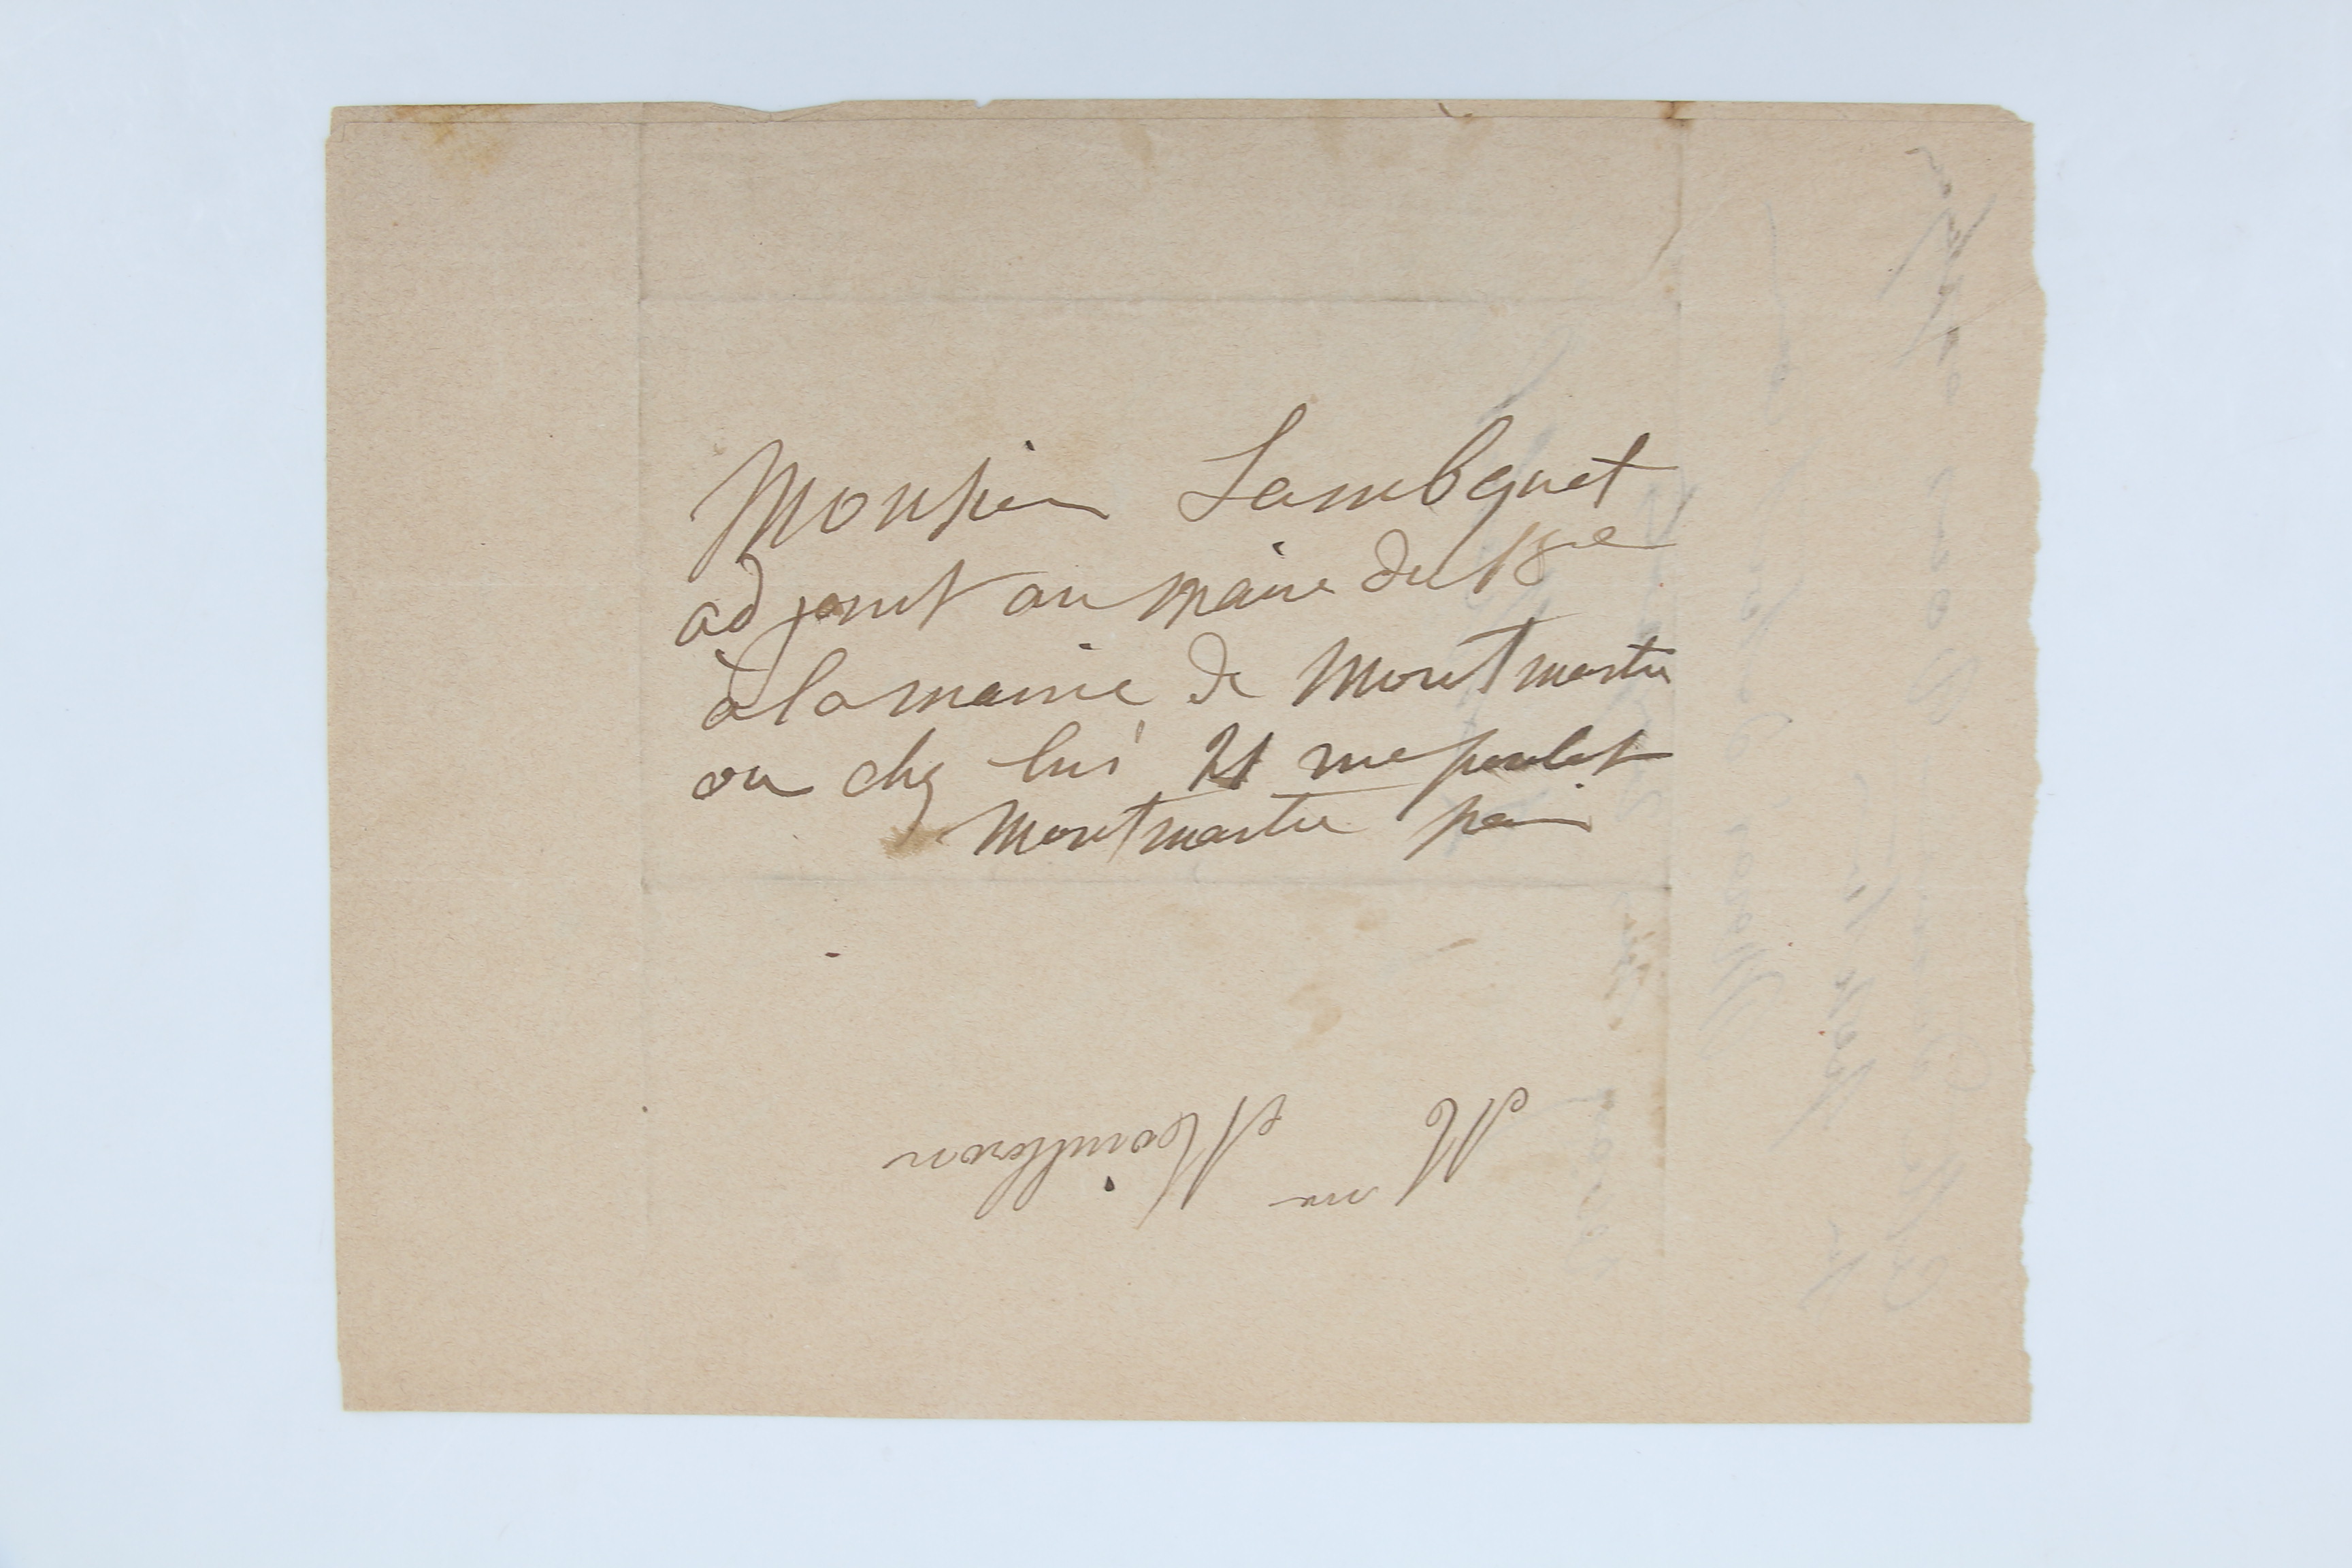 Monsieur Lambquet
adjoint au maire du 18me
à la mairie de Montmartre
ou chez lui 21 rue poulet
Montmartre paris
Mme